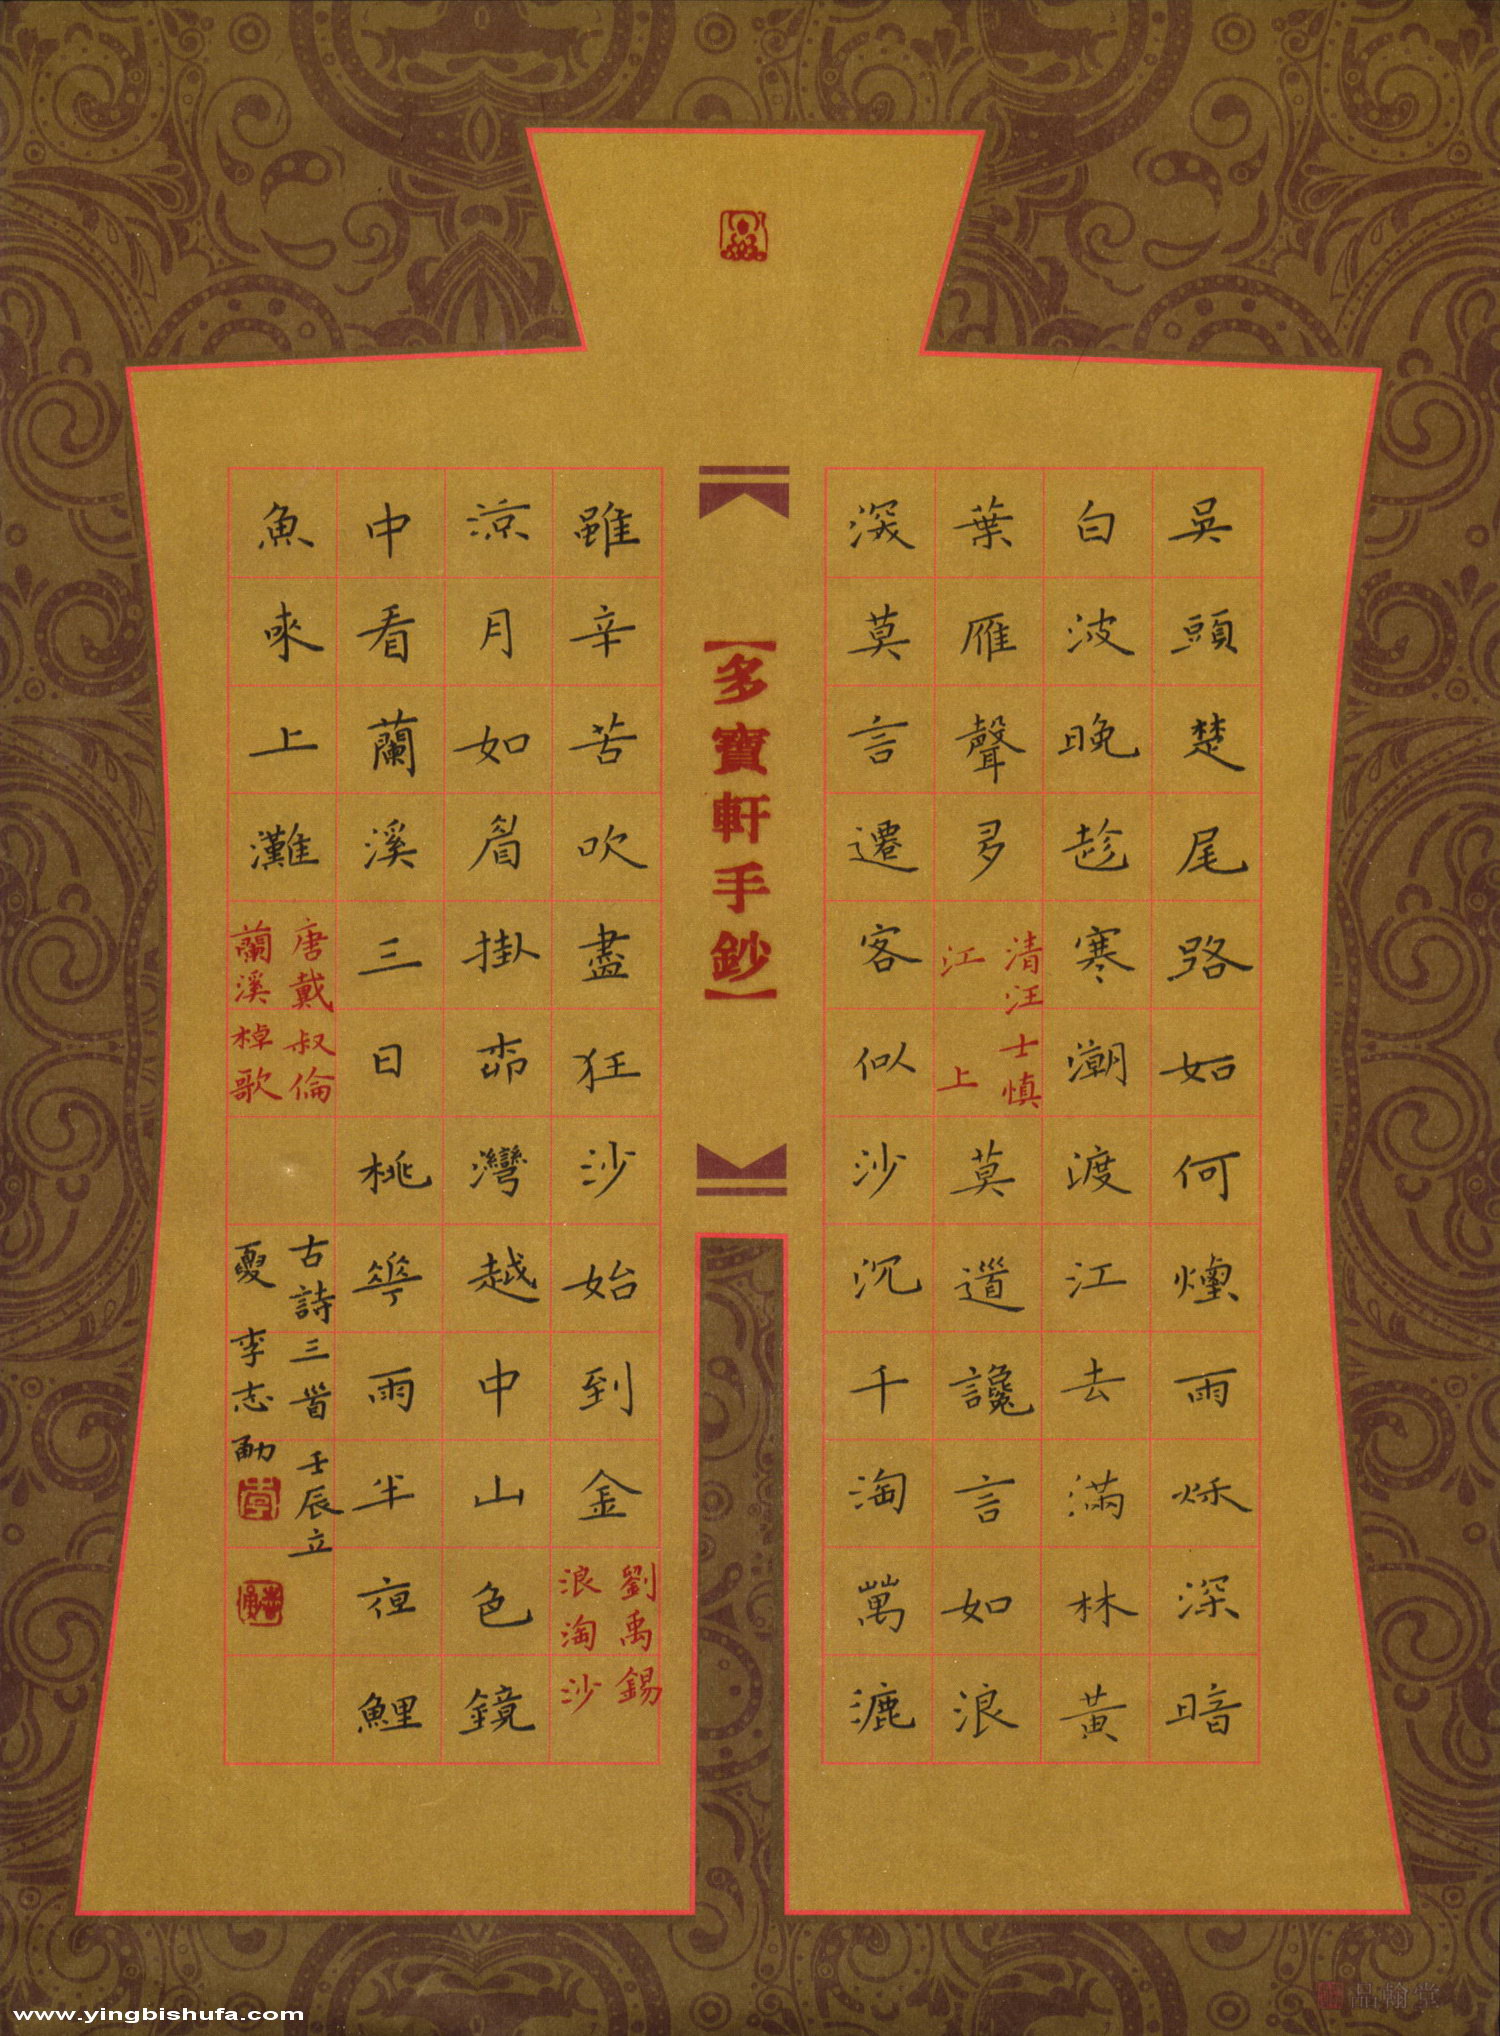 吳頭楚尾路如何煙雨秋深暗
白波晚趁寒潮渡江去滿林黃
葉雁聲多
清汪士慎
江上
莫道讒言如浪
深莫言遷客似沙沉千淘萬漉
【多寶軒手鈔】
雖辛苦吹盡狂沙始到金
劉禹錫
浪淘沙
涼月如眉掛柳灣越中山色鏡
中看蘭溪三日桃花雨半夜鯉
魚來上灘
唐戴叔倫
蘭溪棹歌
古詩三首 壬辰立
夏 李志勇
www.yingbishufa.com
品翰堂